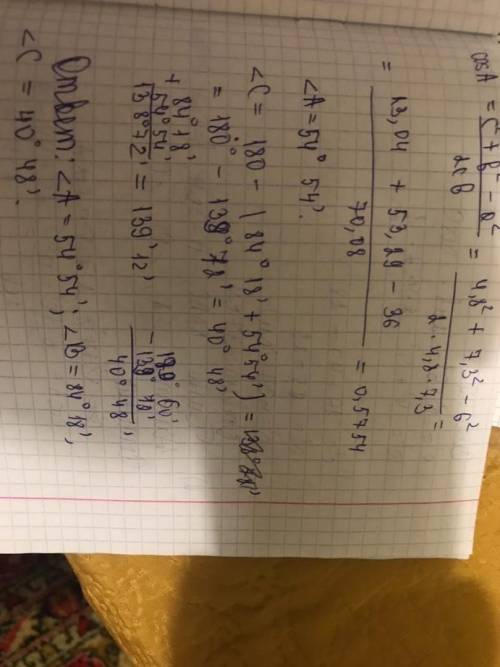 cos A = c² + b² - a² / 2cb = 4,8² + 7,3² - 6² / 2 · 4,8 · 7,3 =
= 23,04 + 53,29 - 36 / 70,08 = 0,5754
∠A = 54° 54'.
∠C = 180 - (84° 18' + 54° 54') =
= 180° - 139° 12' = 40° 48'
+ 84° 18'
54° 54'
138° 72' = 139° 12'
- 179° 60'
139° 12'
40° 48'
Ответ: ∠A = 54° 54'; ∠B = 84° 18',
∠C = 40° 48'.